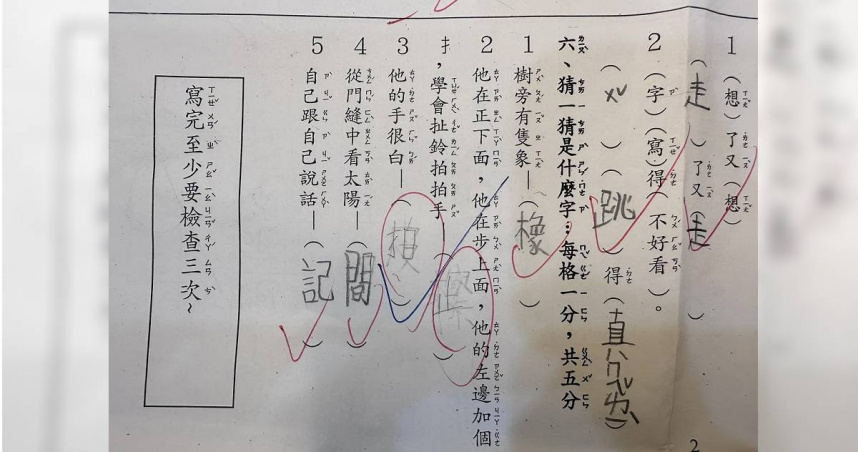 1（想）了又（想）
（走）了又（走）
2（字）（寫）得（不好看）。
（ㄨˇ）（跳）得（
六、猜一猜是什麼字：每格一分，共五分
1樹旁有隻象—（橡）
2他在正下面，他在步上面，他的左邊加個
扌，學會扯鈴拍拍手（
3他的手很白—（
4從門縫中看太陽—（間）
5自己跟自己說話—（記）
寫完至少要檢查三次~
2